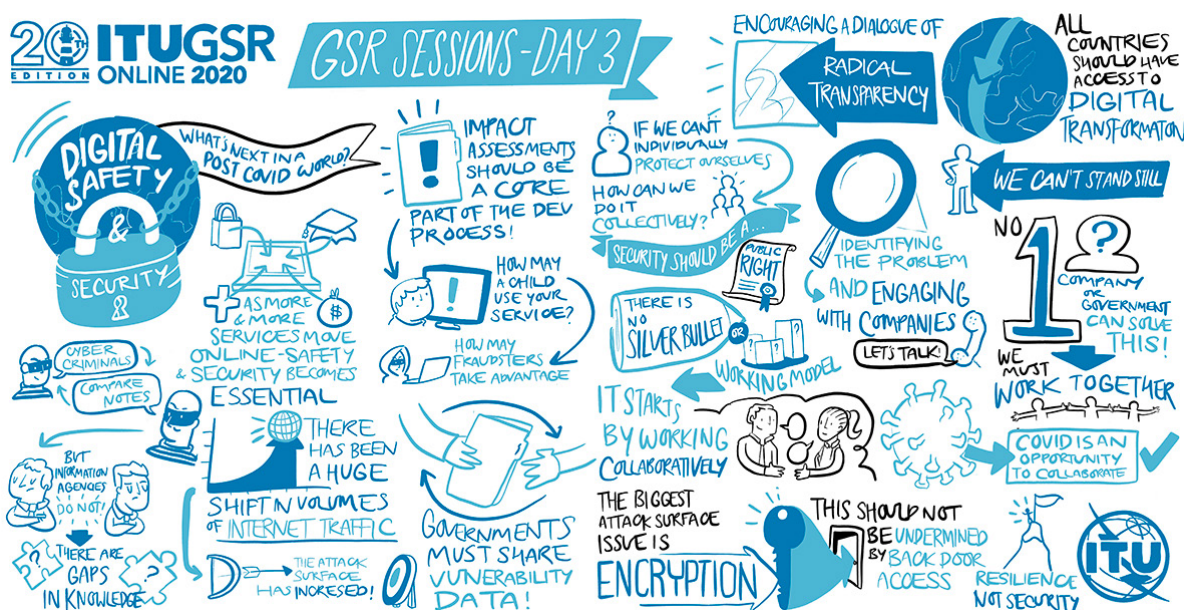 20TH
EDITION
ITUGSR
ONLINE 2020
GSR SESSIONS-DAY 3
DIGITAL
SAFETY
&
SECURITY
WHAT'S NEXT IN A
POST COVID WORLD?
+ AS MORE
& MORE
SERVICES MOVE
ONLINE-SAFETY
& SECURITY BECOMES
ESSENTIAL
CYBER
CRIMINALS
COMPARE
NOTES
BUT
INFORMATION
AGENCIES
DO NOT!
THERE ARE
GAPS
IN KNOWLEDGE
THERE
HAS BEEN
A HUGE
SHIFT IN VOLUMES
OF INTERNET TRAFFIC
THE ATTACK
SURFACE
HAS INCRESED!
IMPACT
ASSESSMENTS
SHOULD BE
A CORE
PART OF THE DEV
PROCESS!
HOW MAY
A CHILD
USE YOUR
SERVICE?
HOW MAY
FRAUDSTERS
TAKE ADVANTAGE
GOVERNMENTS
MUST SHARE
VUNERABILITY
DATA!
IF WE CAN'T
INDIVIDUALLY
PROTECT OURSELVES
HOW CAN WE
DO IT
COLLECTIVELY?
SECURITY SHOULD BE A...
PUBLIC
RIGHT
THERE IS
NO
SILVER BULLET
OR
WORKING MODEL
IT STARTS
BY WORKING
COLLABORATIVELY
THE BIGGEST
ATTACK SURFACE
ISSUE IS
ENCRYPTION
THIS SHOULD NOT
BE UNDERMINED
BY BACK DOOR
ACCESS
ENCOURAGING A DIALOGUE OF
RADICAL
TRANSPARENCY
IDENTIFYING
THE PROBLEM
AND ENGAGING
WITH COMPANIES
LET'S TALK!
ALL
COUNTRIES
SHOULD HAVE
ACCESS TO
DIGITAL
TRANSFORMATION
WE CAN'T STAND STILL
NO 1
COMPANY
OR
GOVERNMENT
CAN SOLVE
THIS!
WE
MUST
WORK TOGETHER
COVID IS AN
OPPORTUNITY
TO COLLABORATE
RESILIENCE
NOT SECURITY
ITU